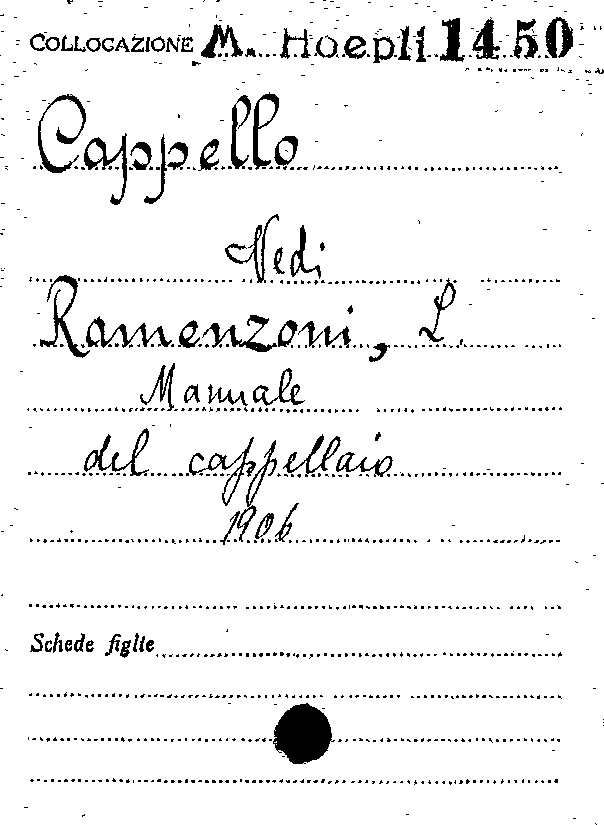 COLLOCAZIONE M. Hoepli 1450
Cappello
Vedi
Ramenzoni, L.
Manuale
del cappellaio
1906
Schede figlie